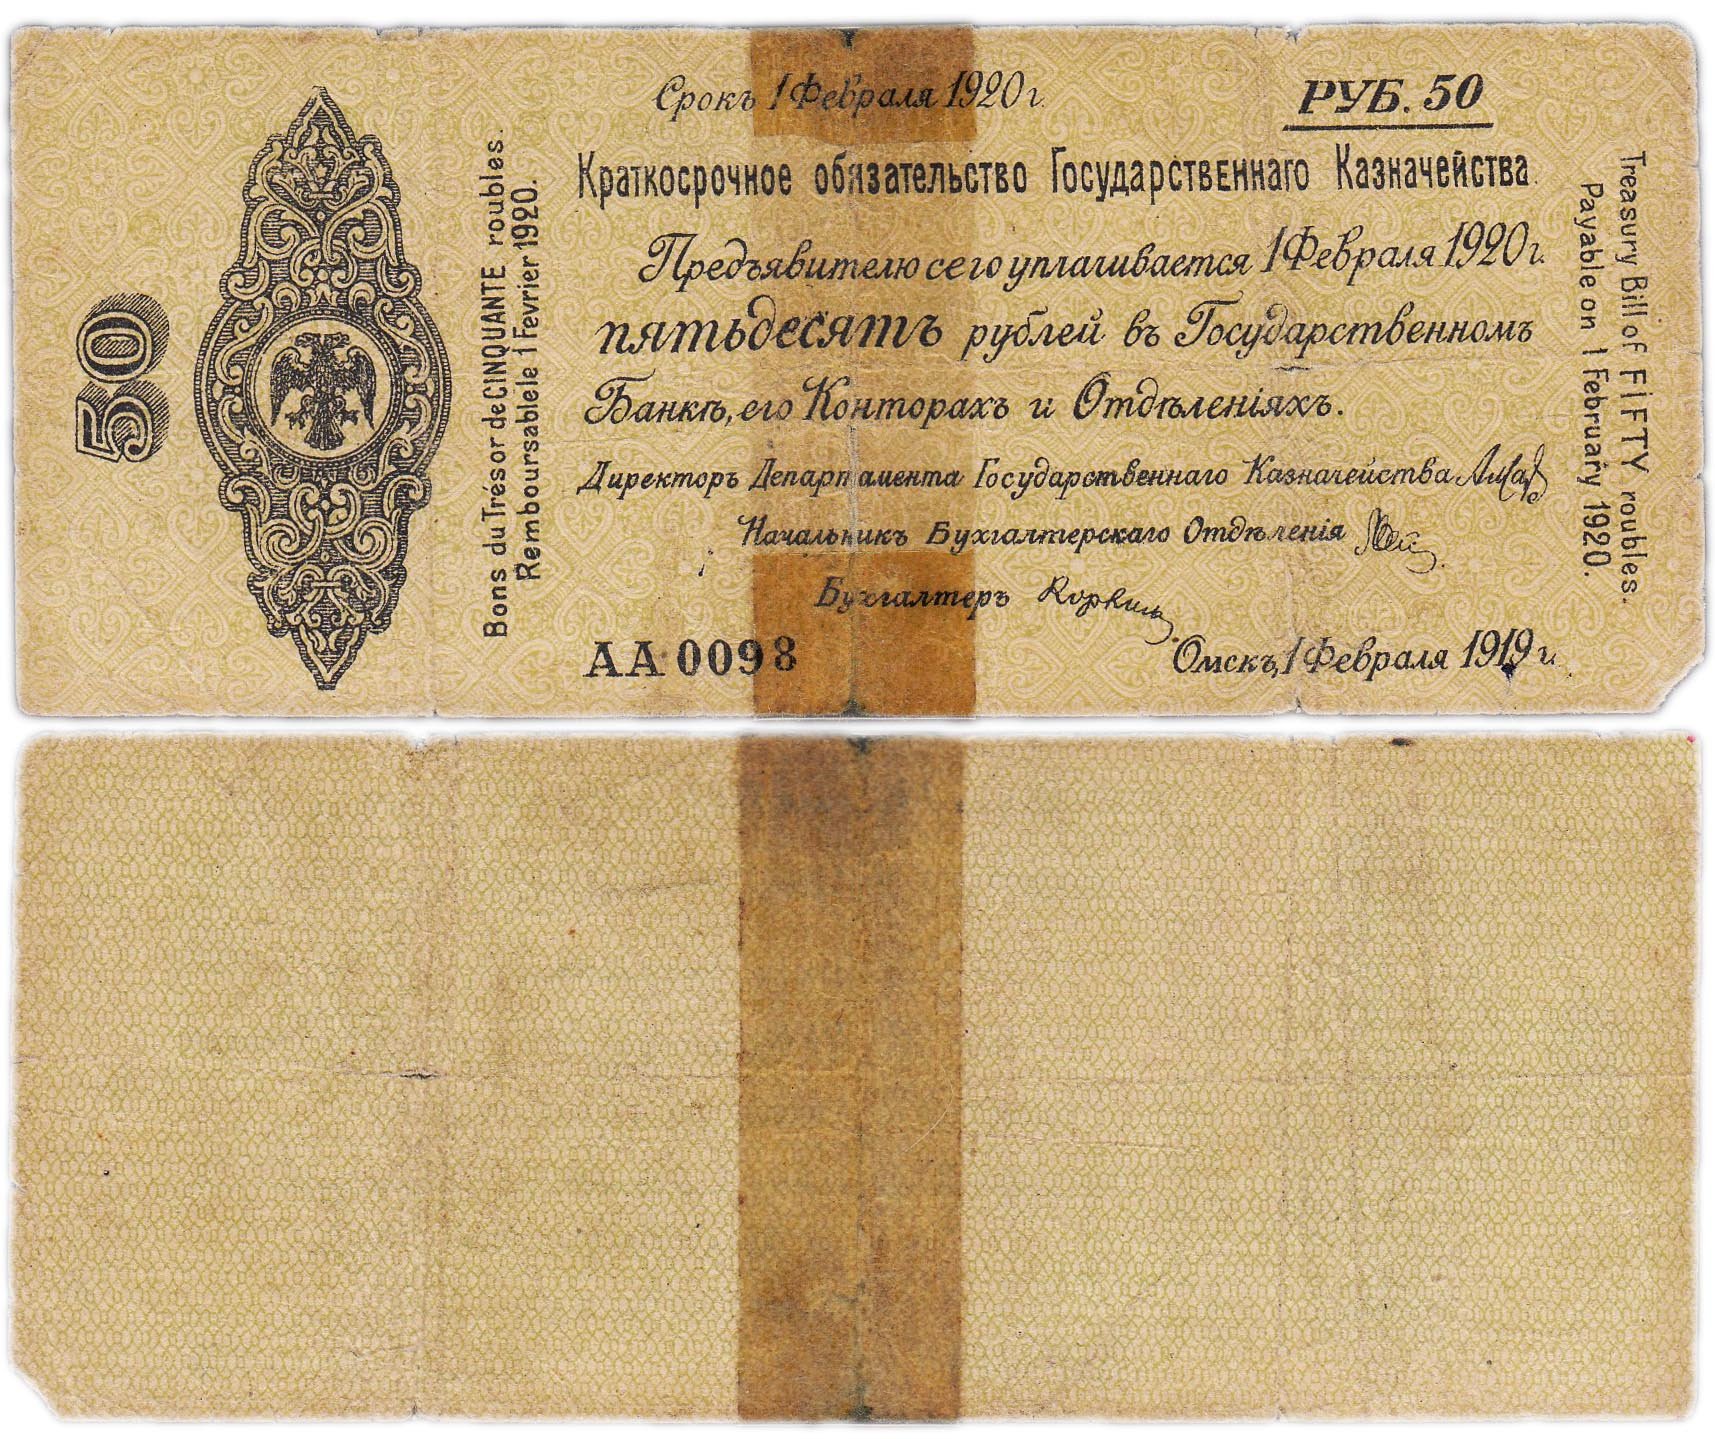 Срокъ 1 Февраля 1920 г.
РУБ. 50
50
Bons du Trésor de CINQUANTE roubles.
Remboursable le 1 Fevrier 1920.
Краткосрочное обязательство Государственнаго Казначейства
Предъявителю сего уплачивается 1 Февраля 1920 г.
пятьдесятъ рублей въ Государственномъ
Банкѣ, его Конторахъ и Отдѣленіяхъ.
Директоръ Департамента Государственнаго Казначейства
Начальникъ Бухгалтерскаго Отдѣленія
Бухгалтеръ
АА 0098
Омскъ, 1 Февраля 1919 г.
Treasury Bill of FIFTY roubles.
Payable on 1 February 1920.